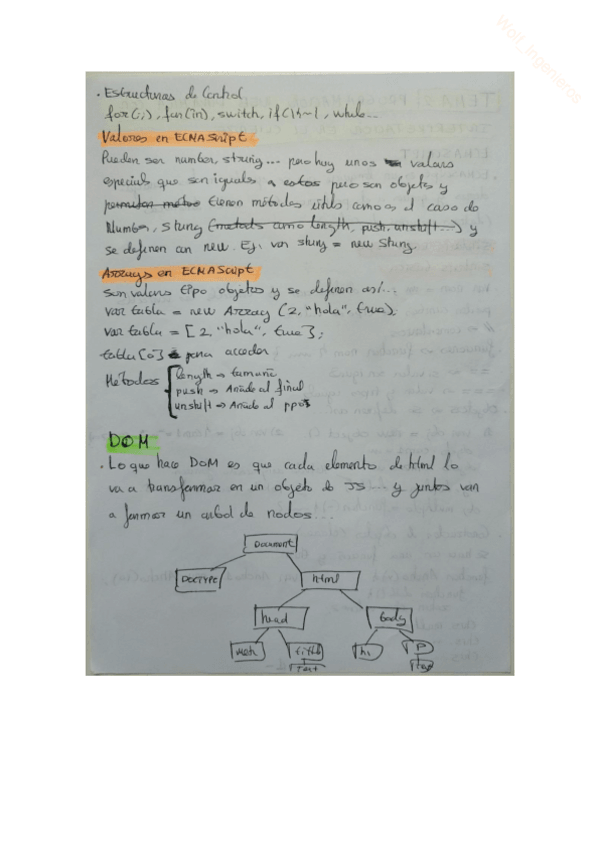 Wolf_Ingenieros
· Estructuras de Control
for(;;), for(in), switch, if() while...
Valores en ECMAScript
Pueden ser number, string... pero hay unos valores
especiales que son iguales a estos pero son objetos y
permiten metodo tienen métodos útiles como es el caso de
Number, String (metodos como length, push, unshift...) y
se definen con new. Ej: var string = new String.
Arrays en ECMAScript
son valores tipo objetos y se definen así...
var tabla = new Array (2, "hola", true);
var tabla = [2, "hola", true];
tabla[0] para acceder
Métodos
length → tamaño
push → Añade al final
unshift → Añade al ppo
DOM
· Lo que hace DOM es que cada elemento de html lo
va a transformar en un objeto de JS... y juntos van
a formar un arbol de nodos...
Document
DOCTYPE
html
head
body
title
h1
P
Text